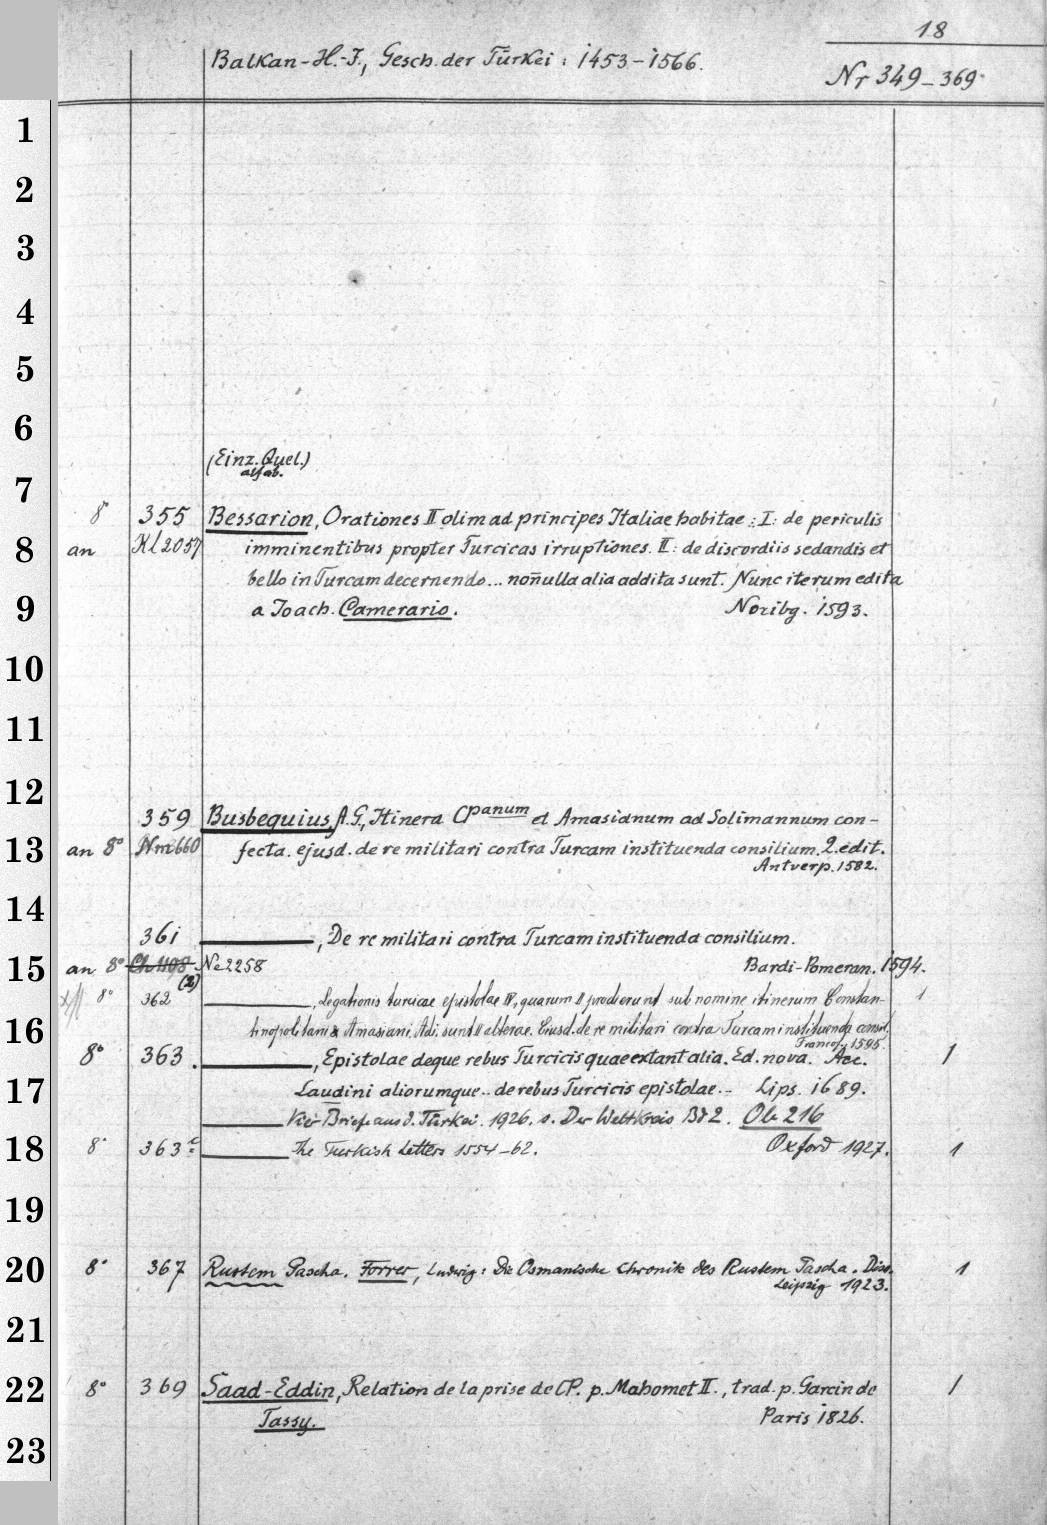 18
Balkan-H.-I., Gesch. der Türkei: 1453-1566.
Nr 349-369
1
2
3
4
5
6
7
(Einz. Quel.)
alfab.
8° 355 Bessarion, Orationes II olim ad principes Italiae habitae: I: de periculis
8 an Kl 2057 imminentibus propter Turcicas irruptiones. II: de discordiis sedandis et
bello in Turcam decernendo... non̄ulla alia addita sunt. Nunc iterum edita
9 a Joach. Camerario. Noribg. 1593.
10
11
12
359 Busbequius, A.G., Itinera CPanum et Amasianum ad Solimannum con-
13 an 8° Nm 660 fecta. ejusd. de re militari contra Turcam instituenda consilium. 2. edit.
Antverp. 1582.
14
361 ———, De re militari contra Turcam instituenda consilium.
15 an 8° Ch 1198 Ne 2258 Bardi-Pomeran. 1594.
(2)
8° 362 ———, Legationis turcicae epistolae IV, quarum II prodierunt sub nomine itinerum Constan- 1
16 tinopolitani & Amasiani. Adi. sunt II alterae. Eiusd. de re militari contra Turcam instituenda consil.
Francof. 1595.
8° 363. ———, Epistolae deque rebus Turcicis quae extant alia. Ed. nova. Acc. 1
17 Laudini aliorumque.. de rebus Turcicis epistolae.- Lips. 1689.
——— Vier Briefe aus d. Türkei. 1926. s. Der Weltkreis Bd 2. Ob 216
18 8° 363c ——— The Turkish Letters 1554-62. Oxford 1927. 1
19
20 8° 367 Rustem Pascha. Forrer, Ludwig: Die Osmanische Chronik des Rustem Pascha. Diss. 1
Leipzig 1923.
21
22 8° 369 Saad-Eddin, Relation de la prise de CP. p. Mahomet II., trad. p. Garcin de 1
Tassy. Paris 1826.
23